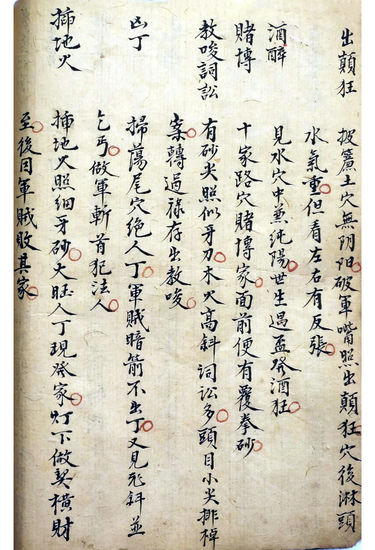 出顛狂 披簾土穴無阴阳破軍嘴照出顛狂穴後淋頭
水氣重但看左右有反張
酒醉 見水穴中純陽世生過盃發酒狂
賭博 十家路穴賭博家面前便有覆拳砂
教唆詞訟 有砂尖照似牙刀木火高斜詞訟多頭目小尖排棹
案轉過祿存出教唆
凶丁 掃蕩尾穴绝人丁軍賊暗箭不出丁又見斜並
乞丐做軍斬首犯法人
揷地火 揷地火照細牙砂大旺人丁現發家灯下做契横財
至後因軍賊敗其家